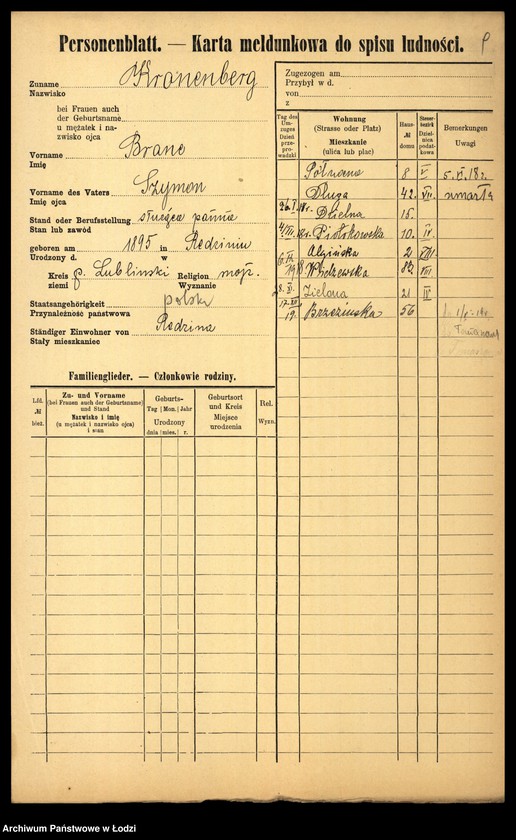 Personenblatt. — Karta meldunkowa do spisu ludności.
Zuname
Nazwisko
Kronenberg
bei Frauen auch
der Geburtsname
u mężatek i na-
zwisko ojca
Vorname
Imię
Brane
Vorname des Vaters
Imię ojca
Szymon
Stand oder Berufsstellung
Stan lub zawód
służąca panna
geboren am 1895 in Redzinin
Urodzony d. w
Kreis p. Lubliński Religion mojż.
ziemi Wyznanie
Staatsangehörigkeit polska
Przynależność państwowa
Ständiger Einwohner von Redzina
Stały mieszkaniec
Familienglieder. — Członkowie rodziny.
Lfd. № bież.
Zu- und Vorname
(bei Frauen auch der Geburtsname)
und Stand
Nazwisko i imię
(u mężatek i nazwisko ojca)
i stan
Geburts-
Tag Mon. Jahr
Urodzony
dnia mies. r.
Geburtsort
und Kreis
Miejsce
urodzenia
Rel.
Wyzn.
Zugezogen am
Przybył w d.
von
z
Tag des Um-zuges
Dzień prze-prowadzki
Wohnung
(Strasse oder Platz)
Mieszkanie
(ulica lub plac)
Haus-
№
domu
Steuer-bezirk
Dziel-nica podat-kowa
Bemerkungen
Uwagi
8 V 5. VI. 18 r.
Długa 42. VII. umarła
26. I 18 r. Dzielna 15.
Piotrkowska 10. IV.
2 VIII
1918. Widzewska 82. VII
Zielona 21 IV
19. Brzezińska 56
Archiwum Państwowe w Łodzi